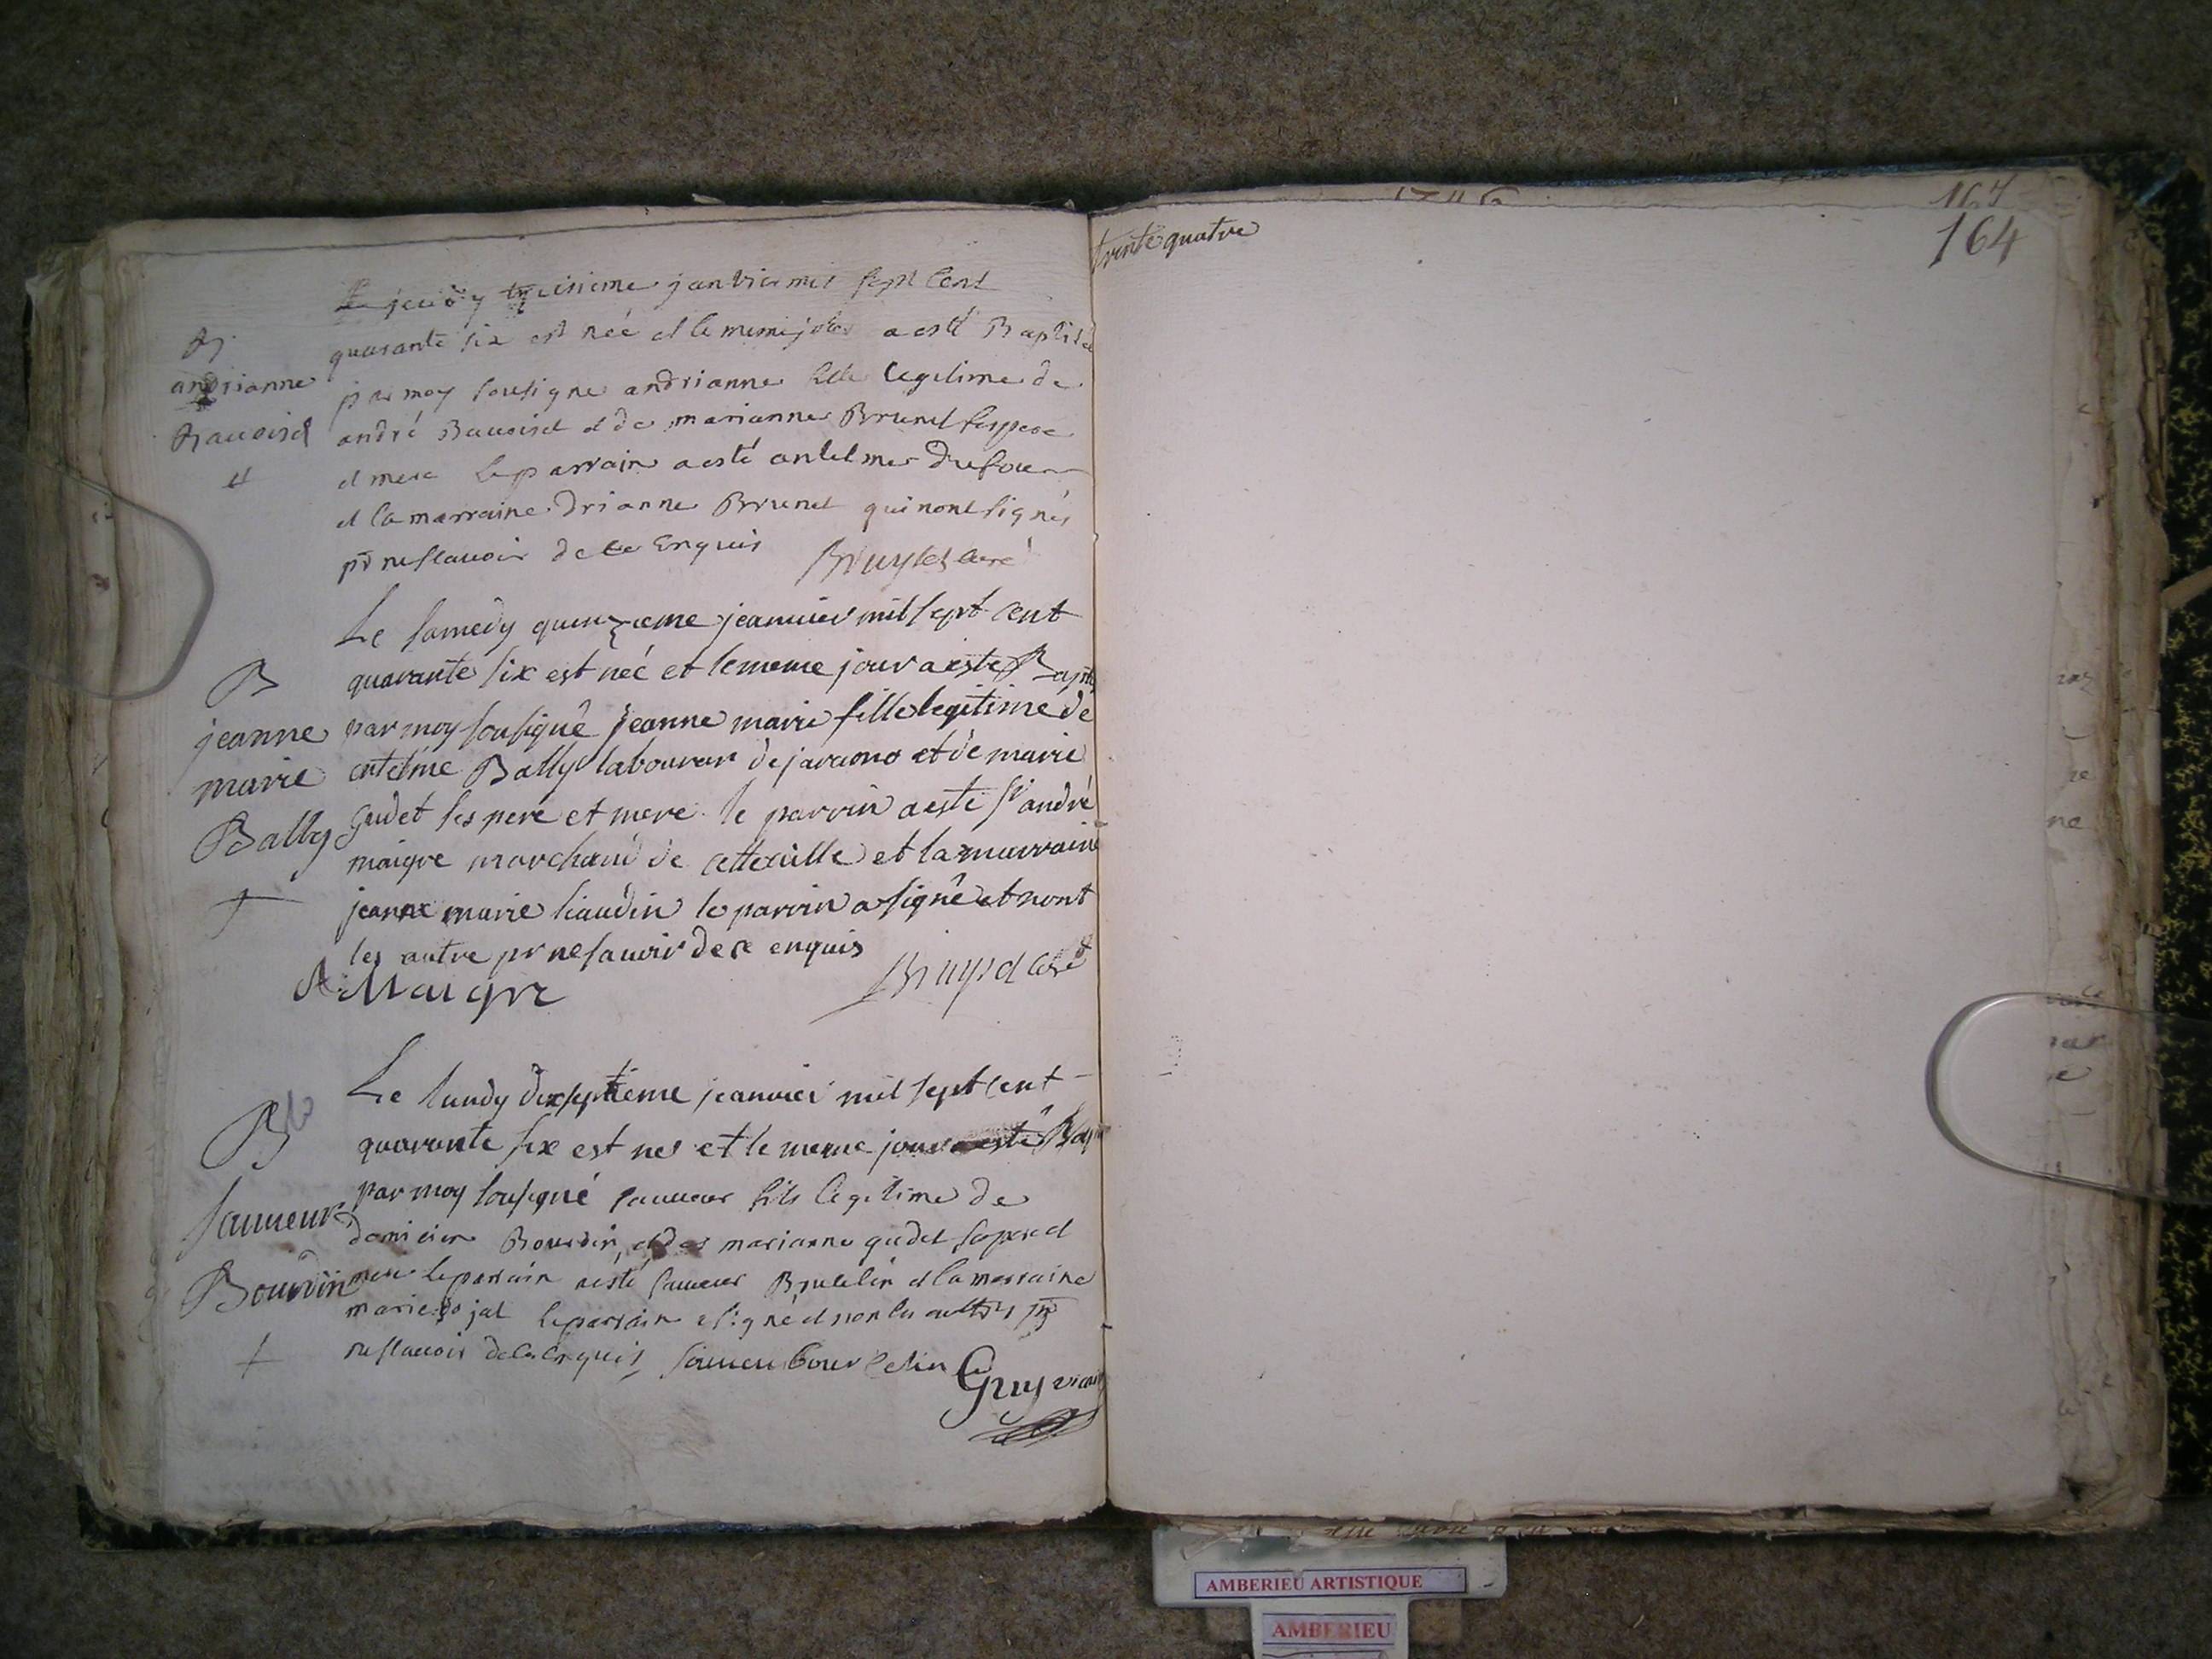 B
andrianne
Bauoisel
Le jeudy treisieme janvier mil sept Cent
quarante six est née et le meme jour a esté Baptisé
par moy sousigne andrianne fille legitime de
andré Bauoisel et de marianne Brunet ses pere
et mere le parrain a esté antelme Dufour
et la marraine drianne Brunet qui nont signés
pr ne scauoir de ce Enquis
curé
B
jeanne
marie
Bally
Le samedy quinzieme jeanuier mil sept cent
quarante six est née et le meme jour a este Bapt
par moy sousigné jeanne marie fille legitime de
entelme Bally labourer de et de marie
gudet ses pere et mere le parrin a este sr andré
maigre marchand de cette ville et la marraine
jeanne marie liaudin le parrin a signé et nont
les autre pr ne sauoir de ce enquis
A Maigre
curé
B
sauueur
Bourdin
Le lundy dixseptieme jeanuier mil sept cent
quarante six est ne et le meme jour a esté Bap
par moy sousigné sauueur fils legitime de
Bourdin et de marianne gudet se pere et
mere le parrain a esté sauueur et la marraine
marie le parrain a signé et non les aultres pr
ne scauoir de ce Enquis
Guy vicaire
trente quatre
164
164
AMBERIEU ARTISTIQUE
AMBERIEU